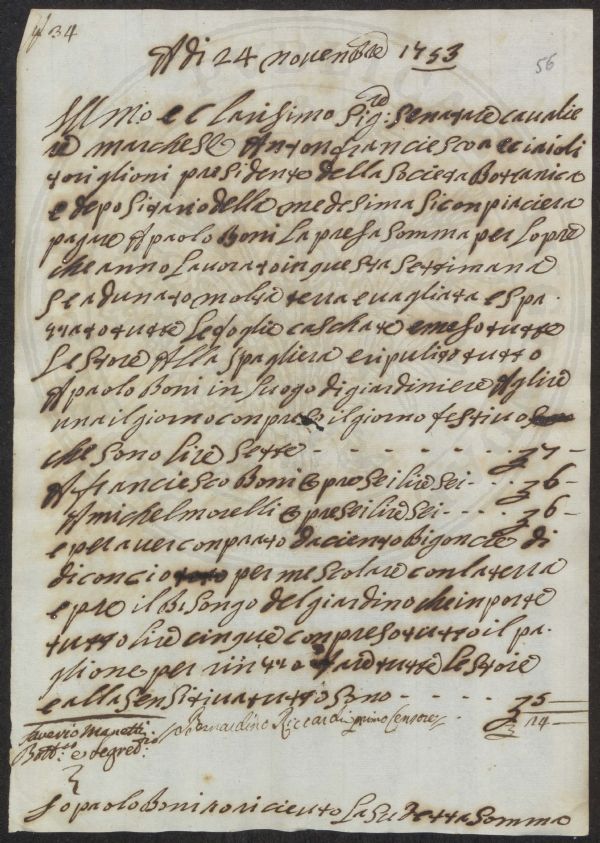 34
Adi 24 novenbre 1753
56
Ill mo e Clarisimo Sig:re Senatore cavalie
re marchese Antonfranciesco acciaioli
toriglioni presidente della Societa Bottanica
e depositario della medesima si conpiaciera
pagare A paolo Boni La presa somma per Lopre
che anno Lavorato in questa settimana
Se adunato molta terra e vagliata e spa-
zzato tutte Le foglie caschate e meso tutte
Le store Alla spagliera e ripulito tutto
A paolo Boni in luogo di giardiniere A lire
una il giorno conpreso il giorno festivo
che sono lire sette - - - - - - - 7 -
A franciesco Boni o pre sei lire sei - - - 6 -
A michel morelli o pre sei lire sei - - - 6 -
e per aver conprato da ciento Bigoncie di
di concio per mescolare con la terra
e pre il Bisongo del giardino che inporte
tutto lire cinque conpreso tutto il pa-
glione per rintto tutte le store
e alla sensitiva tutto sono - - - - - 5
Saverio Manetti Bernardino Riccardi primo Censore 24 -
Bott:co e Segred:rio
Io paolo Boni o riciento La su detta Somma